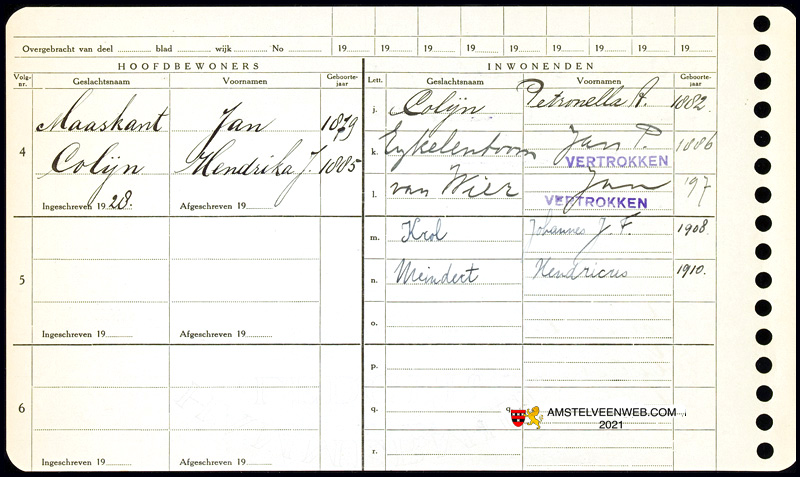 Overgebracht van deel ........ blad ........ wijk ........ No ........ 19 19 19 19 19 19 19 19 19
HOOFDBEWONERS INWONENDEN
Volg-nr. Geslachtsnaam Voornamen Geboorte-jaar Lett. Geslachtsnaam Voornamen Geboorte-jaar
4 Maaskant Jan 1879
Colijn Hendrika J. 1885
Ingeschreven 19 28. Afgeschreven 19
j. Colijn Petronella A. 1882.
k. Eykelenboom Jan P. 1886
VERTROKKEN
l. van Wier Jan
VERTROKKEN
m. Krol Johannes J. F. 1908.
5
n. Meindert Hendricus 1910.
o.
Ingeschreven 19 Afgeschreven 19
p.
6
q.
AMSTELVEENWEB.COM
2021
r.
Ingeschreven 19 Afgeschreven 19